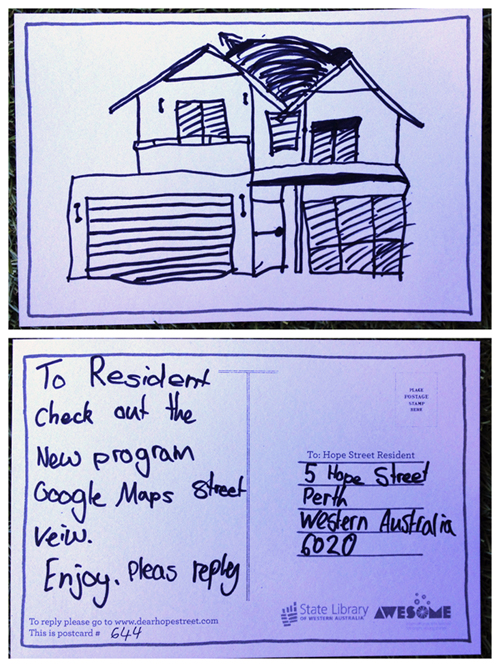 To Resident
Check out the
New program
Google Maps Street
Veiw.
Enjoy. Pleas reply
To reply please go to www.dearhopestreet.com
This is postcard # 644
PLACE
POSTAGE
STAMP
HERE
To: Hope Street Resident
5 Hope Street
Perth
Western Australia
6020
State Library
OF WESTERN AUSTRALIA
AWESOME